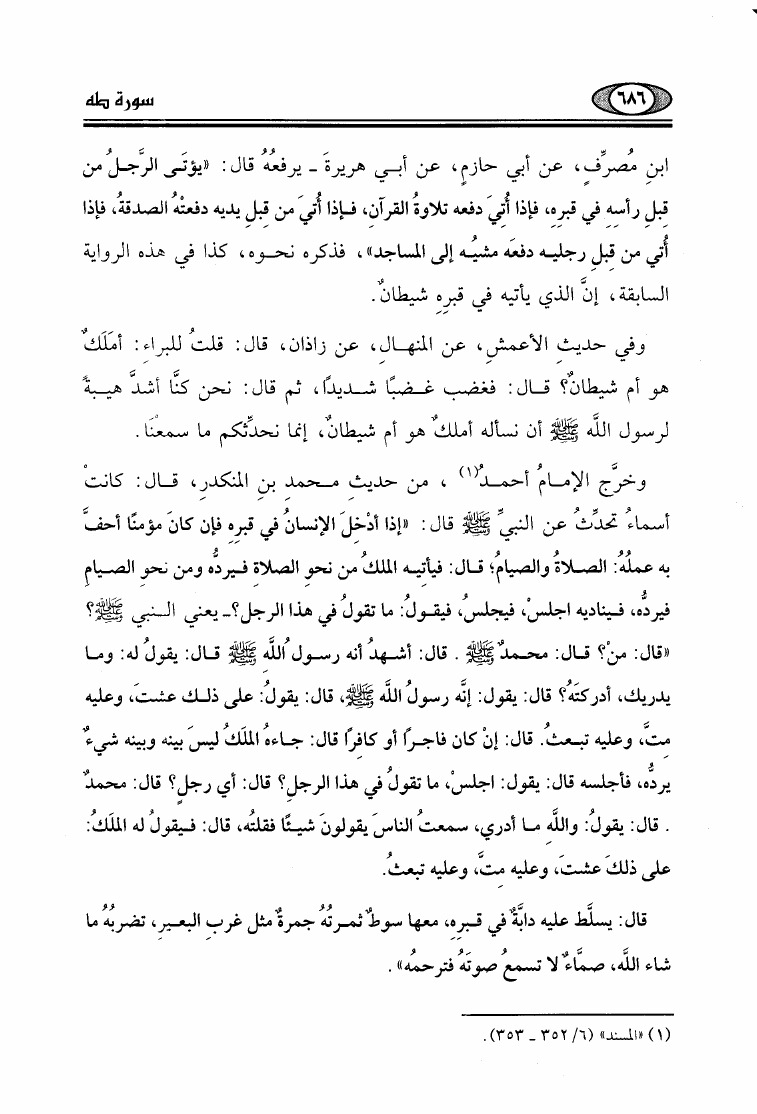 ٦٨٦ سورة طه
ابنِ مُصرِّفٍ، عن أبي حازمٍ، عن أبـي هريرةَ ـ يرفعُهُ قال: «يؤتَـى الرَّجـلُ من
قِبلِ رأسِهِ في قبرِهِ، فإذا أُتيَ دفعه تلاوةُ القرآنِ، فـإذا أُتيَ من قِبلِ يديه دفعتْهُ الصدقةُ، فإذا
أُتي من قِبلِ رجليـه دفعَه مشيُـه إلى المساجد»، فذكره نحـوه، كذا في هذه الرواية
السابقة، إنَّ الذي يأتيه في قبرِهِ شيطانٌ.
وفي حديثِ الأعمشِ، عن المنهـالِ، عن زاذان، قال: قلتُ للبراءِ: أملَكٌ
هو أم شيطانٌ؟ قـال: فغضب غـضبًا شـديدًا، ثم قال: نحن كنَّا أشدَّ هيـبةً
لرسول اللَّه ﷺ أن نسأله أملكٌ هو أم شيطانٌ، إنما نحدِّثكم ما سمعْنَا.
وخرَّج الإمـامُ أحمـدُ(١) ، من حديثِ محـمدِ بنِ المنكدرِ، قـال: كانتْ
أسماءُ تحدِّثُ عن النبيِّ ﷺ قال: «إذا أدْخلَ الإنسانُ في قبرِه فإن كانَ مؤمنًا أحفَّ
به عملُهُ: الصلاةُ والصيامُ؛ قـال: فيأتيـه الملكُ من نحوِ الصلاة فـيردُّه ومن نحوِ الصيامِ
فيردُّه، فـيناديه اجلسْ، فيجلسُ، فيقـولُ: ما تقولُ في هذا الرجل؟ـ يعني الـنبي ﷺ؟
«قال: منْ؟ قـال: محمـدٌ ﷺ . قال: أشـهدُ أنه رسـول اُللَّه ﷺ قـال: يقولُ له: ومـا
يدريك، أدركتَهُ؟ قال: يقول: إنَّه رسولُ اللَّه ﷺ، قال: يقولُ: على ذلـك عشـتَ، وعليه
مـتَّ، وعليه تبـعثُ. قال: إنْ كان فاجـرًا أو كافرًا قال: جـاءهُ الملَكُ ليسَ بينه وبينه شيءٌ
يردُّه، فأجلسه قال: يقول: اجلسْ، ما تقولُ في هذا الرجلِ؟ قال: أي رجلٍ؟ قال: محمدٌ
. قال: يقولُ: واللَّهِ مـا أدري، سمعتُ الناسَ يقولونَ شيـئًا فقلتُه، قال: فـيقولُ له الملَكُ:
على ذلكَ عشـتَ، وعليه متَّ، وعليه تبعثُ.
قال: يسلَّط عليه دابَّةٌ في قـبرِه، معها سوطٌ ثمـرتُهُ جمرةٌ مثل غربِ البعيـرِ، تضربُهُ ما
شاء اللَّه، صمَّاءُ لا تسمعُ صوتَهُ فترحمُه» .
(١) «المسند» (٦/ ٣٥٢ ـ ٣٥٣).